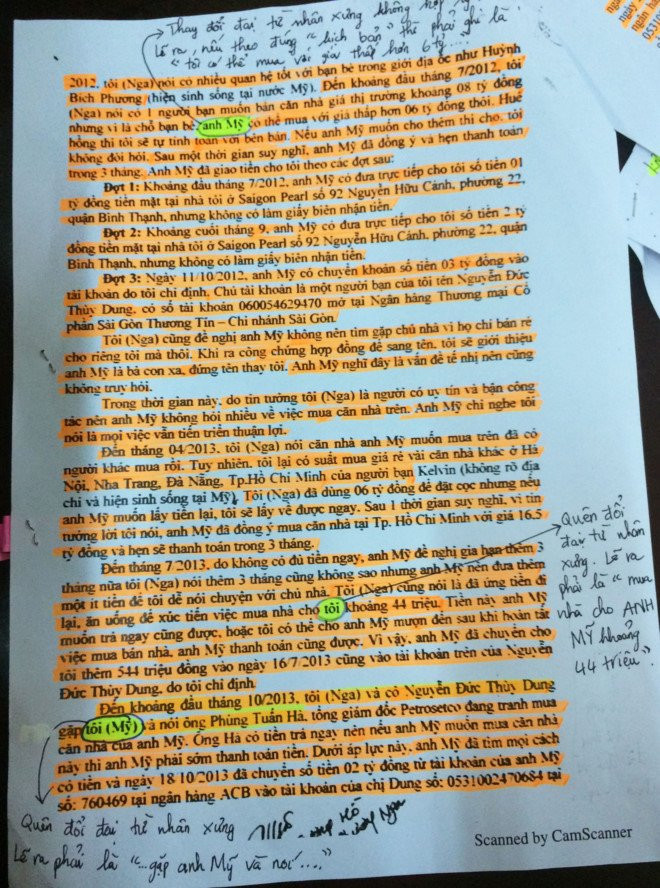 Thay đổi đại từ nhân xưng không hợp
Lẽ ra, nếu theo đúng "kịch bản" thì phải ghi là
"tôi có thể mua với giá thấp hơn 6 tỷ...."
2012, tôi (Nga) nói có nhiều quan hệ tốt với bạn bè trong giới địa ốc như Huỳnh
Bích Phương (hiện sinh sống tại nước Mỹ). Đến khoảng đầu tháng 7/2012, tôi
(Nga) nói có 1 người bạn muốn bán căn nhà giá thị trường khoảng 08 tỷ đồng
nhưng vì là chỗ bạn bè anh Mỹ có thể mua với giá thấp hơn 06 tỷ đồng thôi. Huê
hồng thì tôi sẽ tự tính toán với bên bán. Nếu anh Mỹ muốn cho thêm thì cho, tôi
không đòi hỏi. Sau một thời gian suy nghĩ, anh Mỹ đã đồng ý và hẹn thanh toán
trong 3 tháng. Anh Mỹ đã giao tiền cho tôi theo các đợt sau:
Đợt 1: Khoảng đầu tháng 7/2012, anh Mỹ có đưa trực tiếp cho tôi số tiền 01
tỷ đồng tiền mặt tại nhà tôi ở Saigon Pearl số 92 Nguyễn Hữu Cảnh, phường 22,
quận Bình Thạnh, nhưng không có làm giấy biên nhận tiền.
Đợt 2: Khoảng cuối tháng 9, anh Mỹ có đưa trực tiếp cho tôi số tiền 2 tỷ
đồng tiền mặt tại nhà tôi ở Saigon Pearl số 92 Nguyễn Hữu Cảnh, phường 22, quận
Bình Thạnh, nhưng không có làm giấy biên nhận tiền.
Đợt 3: Ngày 11/10/2012, anh Mỹ có chuyển khoản số tiền 03 tỷ đồng vào
tài khoản do tôi chỉ định. Chủ tài khoản là một người bạn của tôi tên Nguyễn Đức
Thùy Dung, có số tài khoản 060054629470 mở tại Ngân hàng Thương mại Cổ
phần Sài Gòn Thương Tín – Chi nhánh Sài Gòn.
Tôi (Nga) cũng đề nghị anh Mỹ không nên tìm gặp chủ nhà vì họ chỉ bán rẻ
cho riêng tôi mà thôi. Khi ra công chứng hợp đồng để sang tên, tôi sẽ giới thiệu
anh Mỹ là bà con xa, đứng tên thay tôi. Anh Mỹ nghĩ đây là vấn đề tế nhị nên cũng
không truy hỏi.
Trong thời gian này, do tin tưởng tôi (Nga) là người có uy tín và bận công
tác nên anh Mỹ không hỏi nhiều về việc mua căn nhà trên. Anh Mỹ chỉ nghe tôi
nói là mọi việc vẫn tiến triển thuận lợi.
Đến tháng 04/2013, tôi (Nga) nói căn nhà anh Mỹ muốn mua trên đã có
người khác mua rồi. Tuy nhiên, tôi lại có suất mua giá rẻ vài căn nhà khác ở Hà
Nội, Nha Trang, Đà Nẵng, Tp.Hồ Chí Minh của người bạn Kelvin (không rõ địa
chỉ và hiện sinh sống tại Mỹ). Tôi (Nga) đã dùng 06 tỷ đồng để đặt cọc nhưng nếu
anh Mỹ muốn lấy tiền lại, tôi sẽ lấy về được ngay. Sau 1 thời gian suy nghĩ, vì tin
tưởng lời tôi nói, anh Mỹ đã đồng ý mua căn nhà tại Tp. Hồ Chí Minh với giá 16.5
tỷ đồng và hẹn sẽ thanh toán trong 3 tháng.
Đến tháng 7/2013, do không có đủ tiền ngay, anh Mỹ đề nghị gia hạn thêm 3
tháng nữa tôi (Nga) nói thêm 3 tháng cũng không sao nhưng anh Mỹ nên đưa thêm
một ít tiền để tôi dễ nói chuyện với chủ nhà. Tôi (Nga) cũng nói là đã ứng tiền đi
lại, ăn uống để xúc tiến việc mua nhà cho tôi khoảng 44 triệu. Tiền này anh Mỹ
muốn trả ngay cũng được, hoặc tôi có thể cho anh Mỹ mượn đến sau khi hoàn tất
việc mua bán nhà, anh Mỹ thanh toán cũng được. Vì vậy, anh Mỹ đã chuyển cho
tôi thêm 544 triệu đồng vào ngày 16/7/2013 cũng vào tài khoản trên của Nguyễn
Đức Thùy Dung, do tôi chỉ định.
Quên đổi
đại từ nhân
xưng. Lẽ ra
phải là "mua
nhà cho ANH
MỸ khoảng
44 triệu".
Đến khoảng đầu tháng 10/2013, tôi (Nga) và cô Nguyễn Đức Thùy Dung
gặp tôi (Mỹ) và nói ông Phùng Tuấn Hà, tổng giám đốc Petrosetco đang tranh mua
căn nhà của anh Mỹ. Ông Hà có tiền trả ngay nên nếu anh Mỹ muốn mua căn nhà
này thì anh Mỹ phải sớm thanh toán tiền. Dưới áp lực này, anh Mỹ đã tìm mọi cách
có tiền và ngày 18/10/2013 đã chuyển số tiền 02 tỷ đồng từ tài khoản của anh Mỹ
số: 760469 tại ngân hàng ACB vào tài khoản của chị Dung số: 0531002470684 tại
Quên đổi đại từ nhân xưng
Lẽ ra phải là "...gặp anh Mỹ và nói...."
Scanned by CamScanner